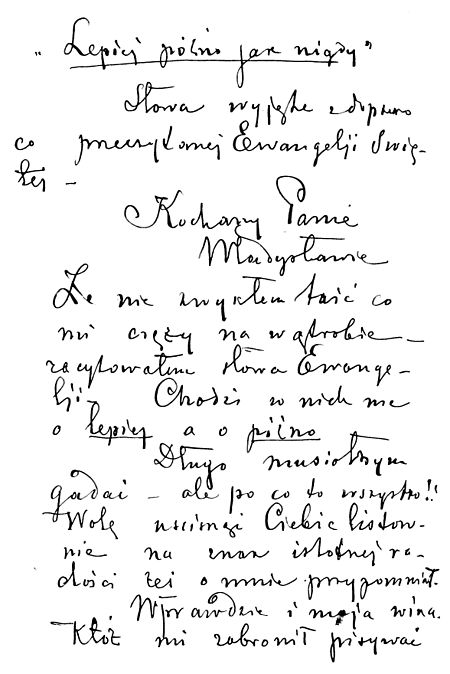 „Lepiej późno jak nigdy”
Słowa wyjęte z dopiero
co przeczytanej Ewangelji Świę-
tej –
Kochany Panie
Władysławie
Że nie zwykłem taić co
mi cięży na wątrobie –
zacytowałem słowa Ewange-
lji – Chodzi w nich nie
o lepiej a o późno
Długo musiałbym
gadać – ale po co to wszystko!!
Wolę uścisnąć Ciebie listow-
nie na znak istotnej ra-
dości żeś o mnie przypomniał.
Wprawdzie i moja wina.
Któż mi zabronił pisywać